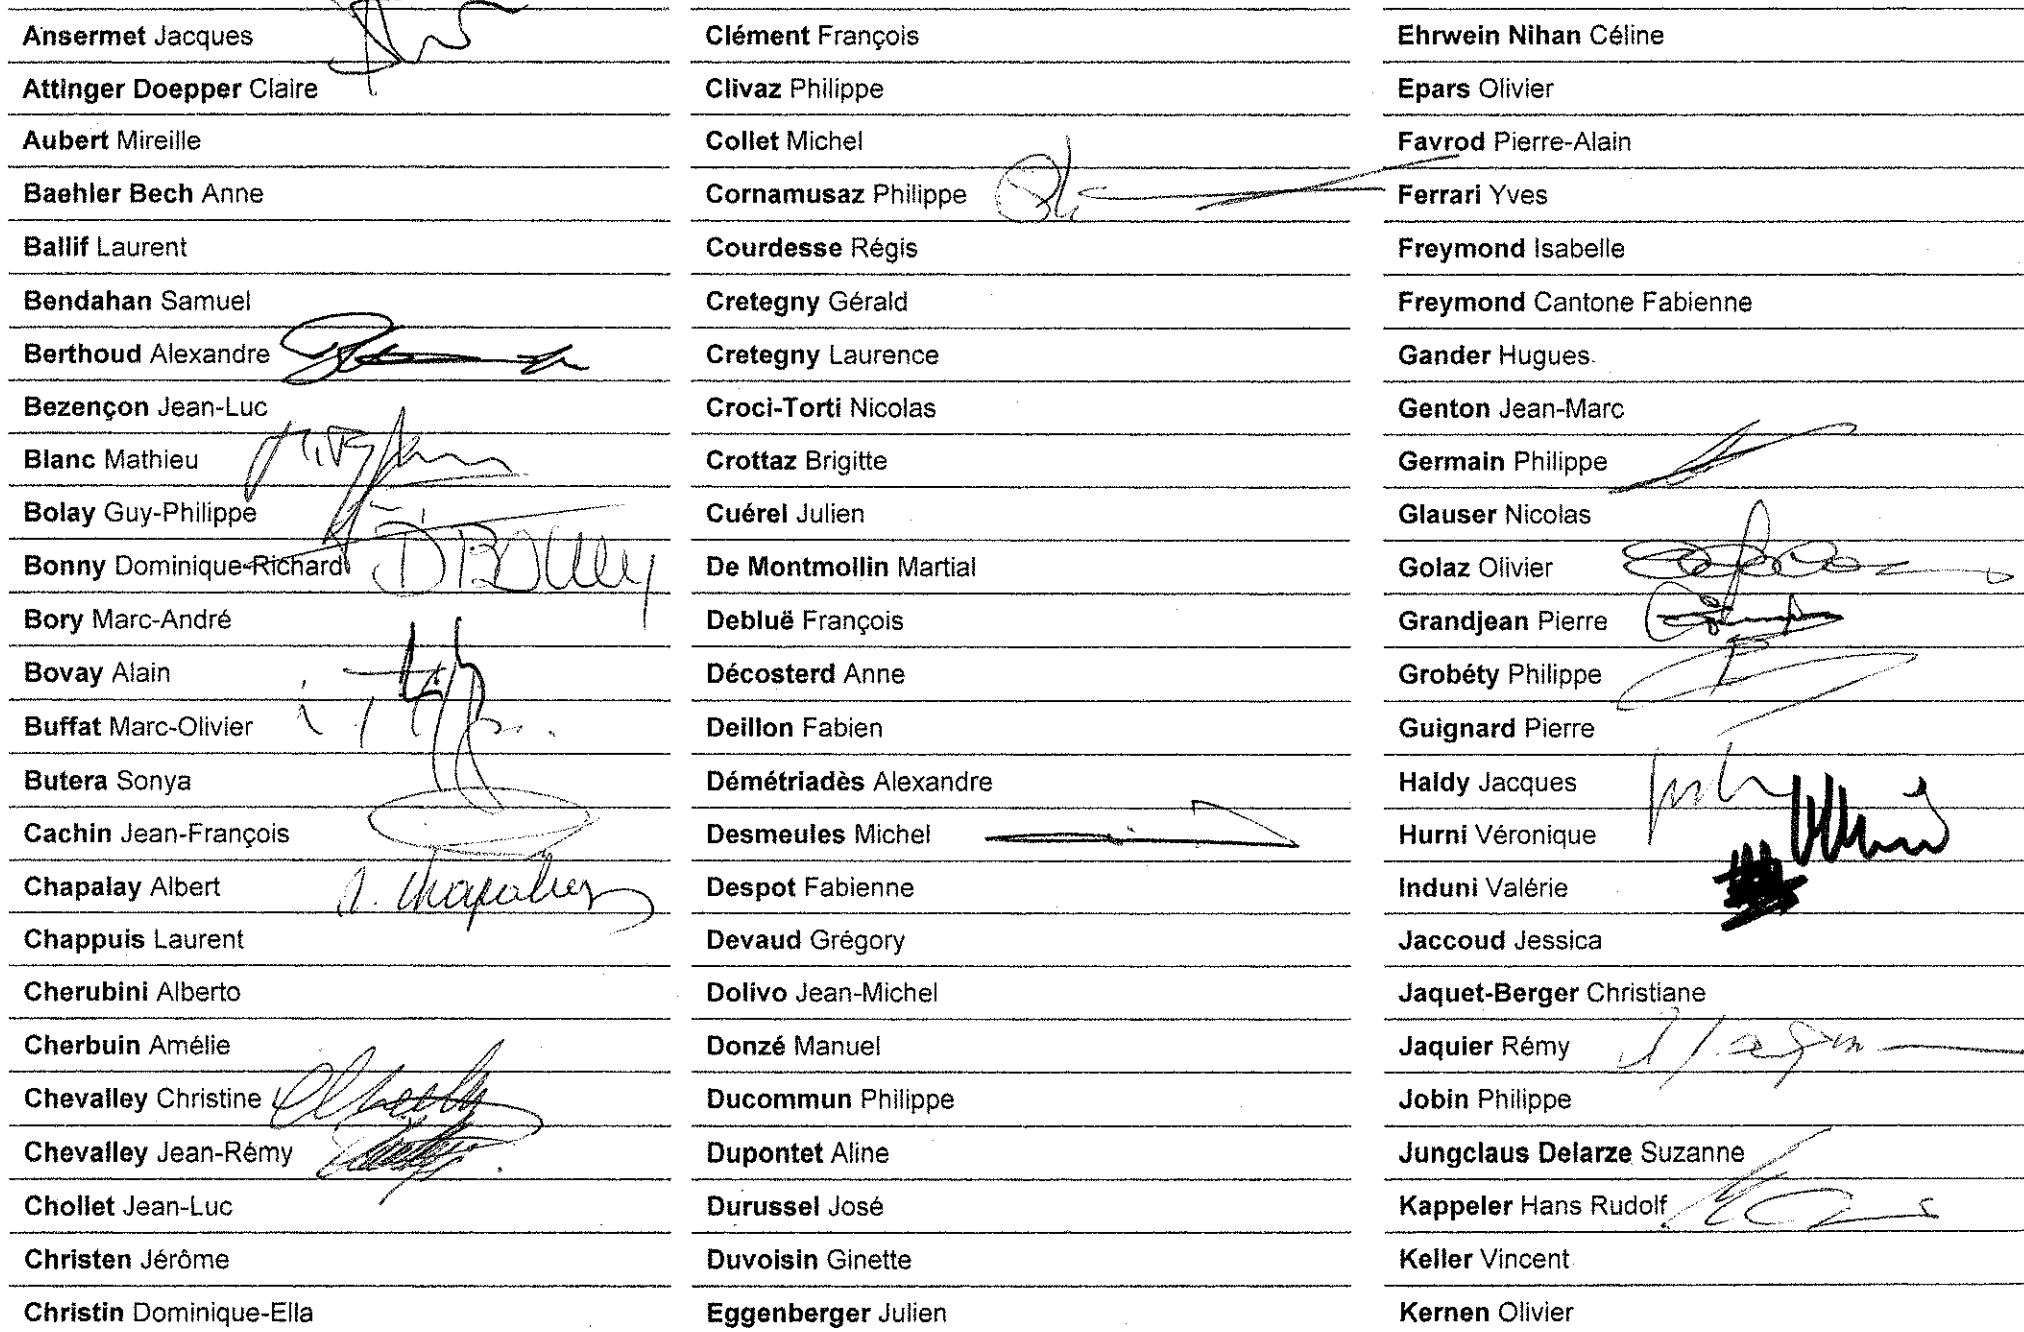 Ansermet Jacques
Attinger Doepper Claire
Aubert Mireille
Baehler Bech Anne
Ballif Laurent
Bendahan Samuel
Berthoud Alexandre
Bezençon Jean-Luc
Blanc Mathieu
Bolay Guy-Philippe
Bonny Dominique-Richard
Bory Marc-André
Bovay Alain
Buffat Marc-Olivier
Butera Sonya
Cachin Jean-François
Chapalay Albert A. Chapalay
Chappuis Laurent
Cherubini Alberto
Cherbuin Amélie
Chevalley Christine
Chevalley Jean-Rémy
Chollet Jean-Luc
Christen Jérôme
Christin Dominique-Ella
Clément François
Clivaz Philippe
Collet Michel
Cornamusaz Philippe
Courdesse Régis
Cretegny Gérald
Cretegny Laurence
Croci-Torti Nicolas
Crottaz Brigitte
Cuérel Julien
De Montmollin Martial
Debluë François
Décosterd Anne
Deillon Fabien
Démétriadès Alexandre
Desmeules Michel
Despot Fabienne
Devaud Grégory
Dolivo Jean-Michel
Donzé Manuel
Ducommun Philippe
Dupontet Aline
Durussel José
Duvoisin Ginette
Eggenberger Julien
Ehrwein Nihan Céline
Epars Olivier
Favrod Pierre-Alain
Ferrari Yves
Freymond Isabelle
Freymond Cantone Fabienne
Gander Hugues
Genton Jean-Marc
Germain Philippe
Glauser Nicolas
Golaz Olivier
Grandjean Pierre
Grobéty Philippe
Guignard Pierre
Haldy Jacques
Hurni Véronique
Induni Valérie
Jaccoud Jessica
Jaquet-Berger Christiane
Jaquier Rémy
Jobin Philippe
Jungclaus Delarze Suzanne
Kappeler Hans Rudolf
Keller Vincent
Kernen Olivier